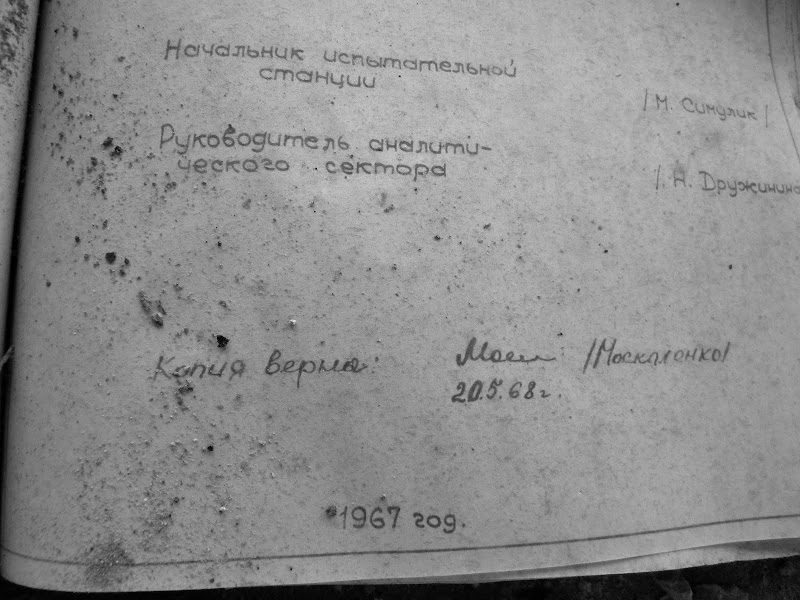 Начальник испытательной
станции /М. Симулик/
Руководитель аналити-
ческого сектора /. Н. Дружинина
Копия верна: /Москаленко/
20.5.68г.
1967 год.